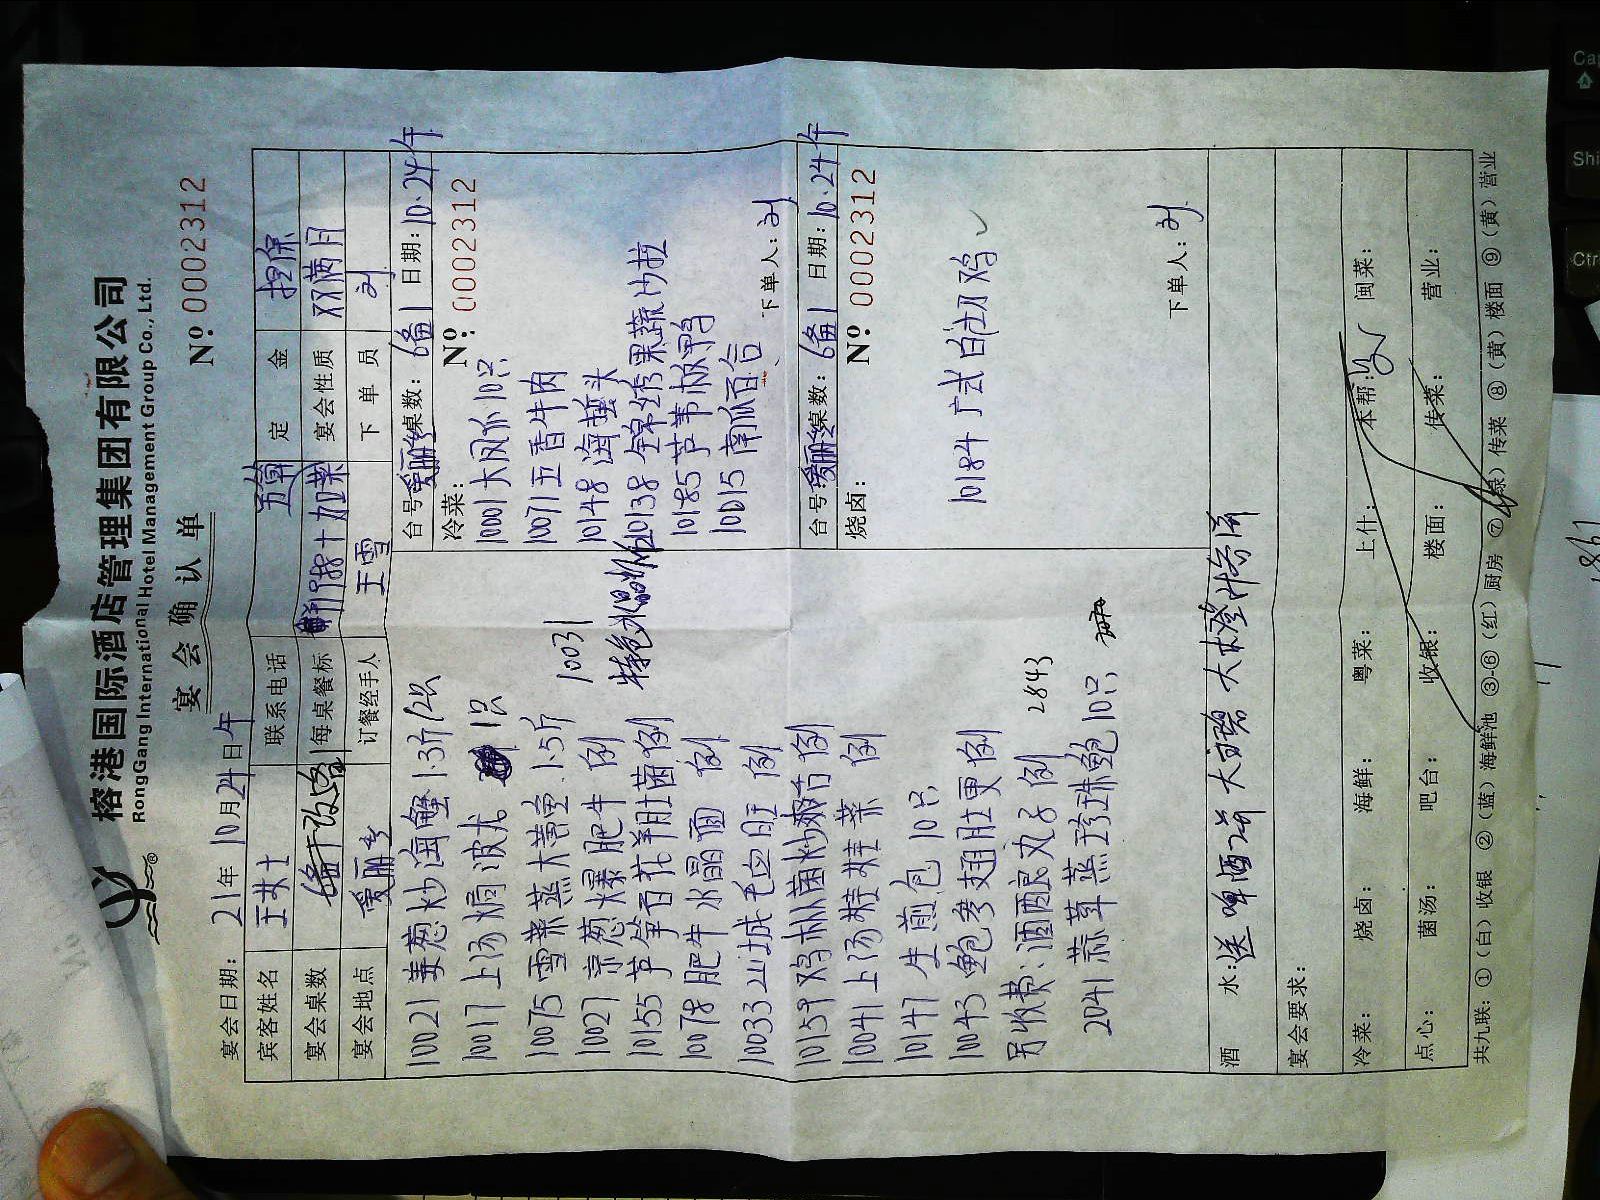 榕港国际酒店管理集团有限公司
RongGang International Hotel Management Group Co., Ltd.
宴会确认单
宴会日期: 21年10月24日午
Nº 0002312
宾客姓名 王女士 联系电话 定金 担保
宴会桌数 6备1 每桌餐标 加菜 宴会性质 双满月
宴会地点 爱丽 订餐经手人 王雪 下单员 刘
10021 姜葱炒海蟹 1.3斤/2只
10017 上汤焗波龙 1只
10075 雪菜蒸大黄鱼 1.5斤
10027 京葱爆肥牛 例
10155 芦笋百花羊肚菌 例
10078 肥牛水晶面 例
10033 山城毛血旺 例
10159 鸡枞菌炒爽肚 例
10041 上汤桂娃菜 例
10147 生煎包 10只
10043 鲍参翅肚羹 例
另收费:酒酿丸子 例 2843
2041 蒜茸蒸珍珠鲍 10只
10031
特色水晶
台号 爱丽 桌数: 6备1 日期: 10.24午
冷菜: Nº: 0002312
10001 大凤爪 10只
10071 五香牛肉
10148 海蜇头
10138 锦绣果蔬沙拉
10185 芦苇板鸭
10015 南瓜百合
下单人: 刘
台号 爱丽 桌数: 6备1 日期: 10.24午
烧卤: Nº: 0002312
10184 广式白切鸡 ✓
下单人: 刘
酒水: 送啤酒 大雪碧 大橙汁
宴会要求:
冷菜: 烧卤: 海鲜: 粤菜: 上什: 本帮: 闽菜:
点心: 菌汤: 吧台: 收银: 楼面: 传菜: 营业:
共九联: ①(白)收银 ②(蓝)海鲜池 ③-⑥(红)厨房 ⑦(绿)传菜 ⑧(黄)楼面 ⑨(黄)营业
Shi